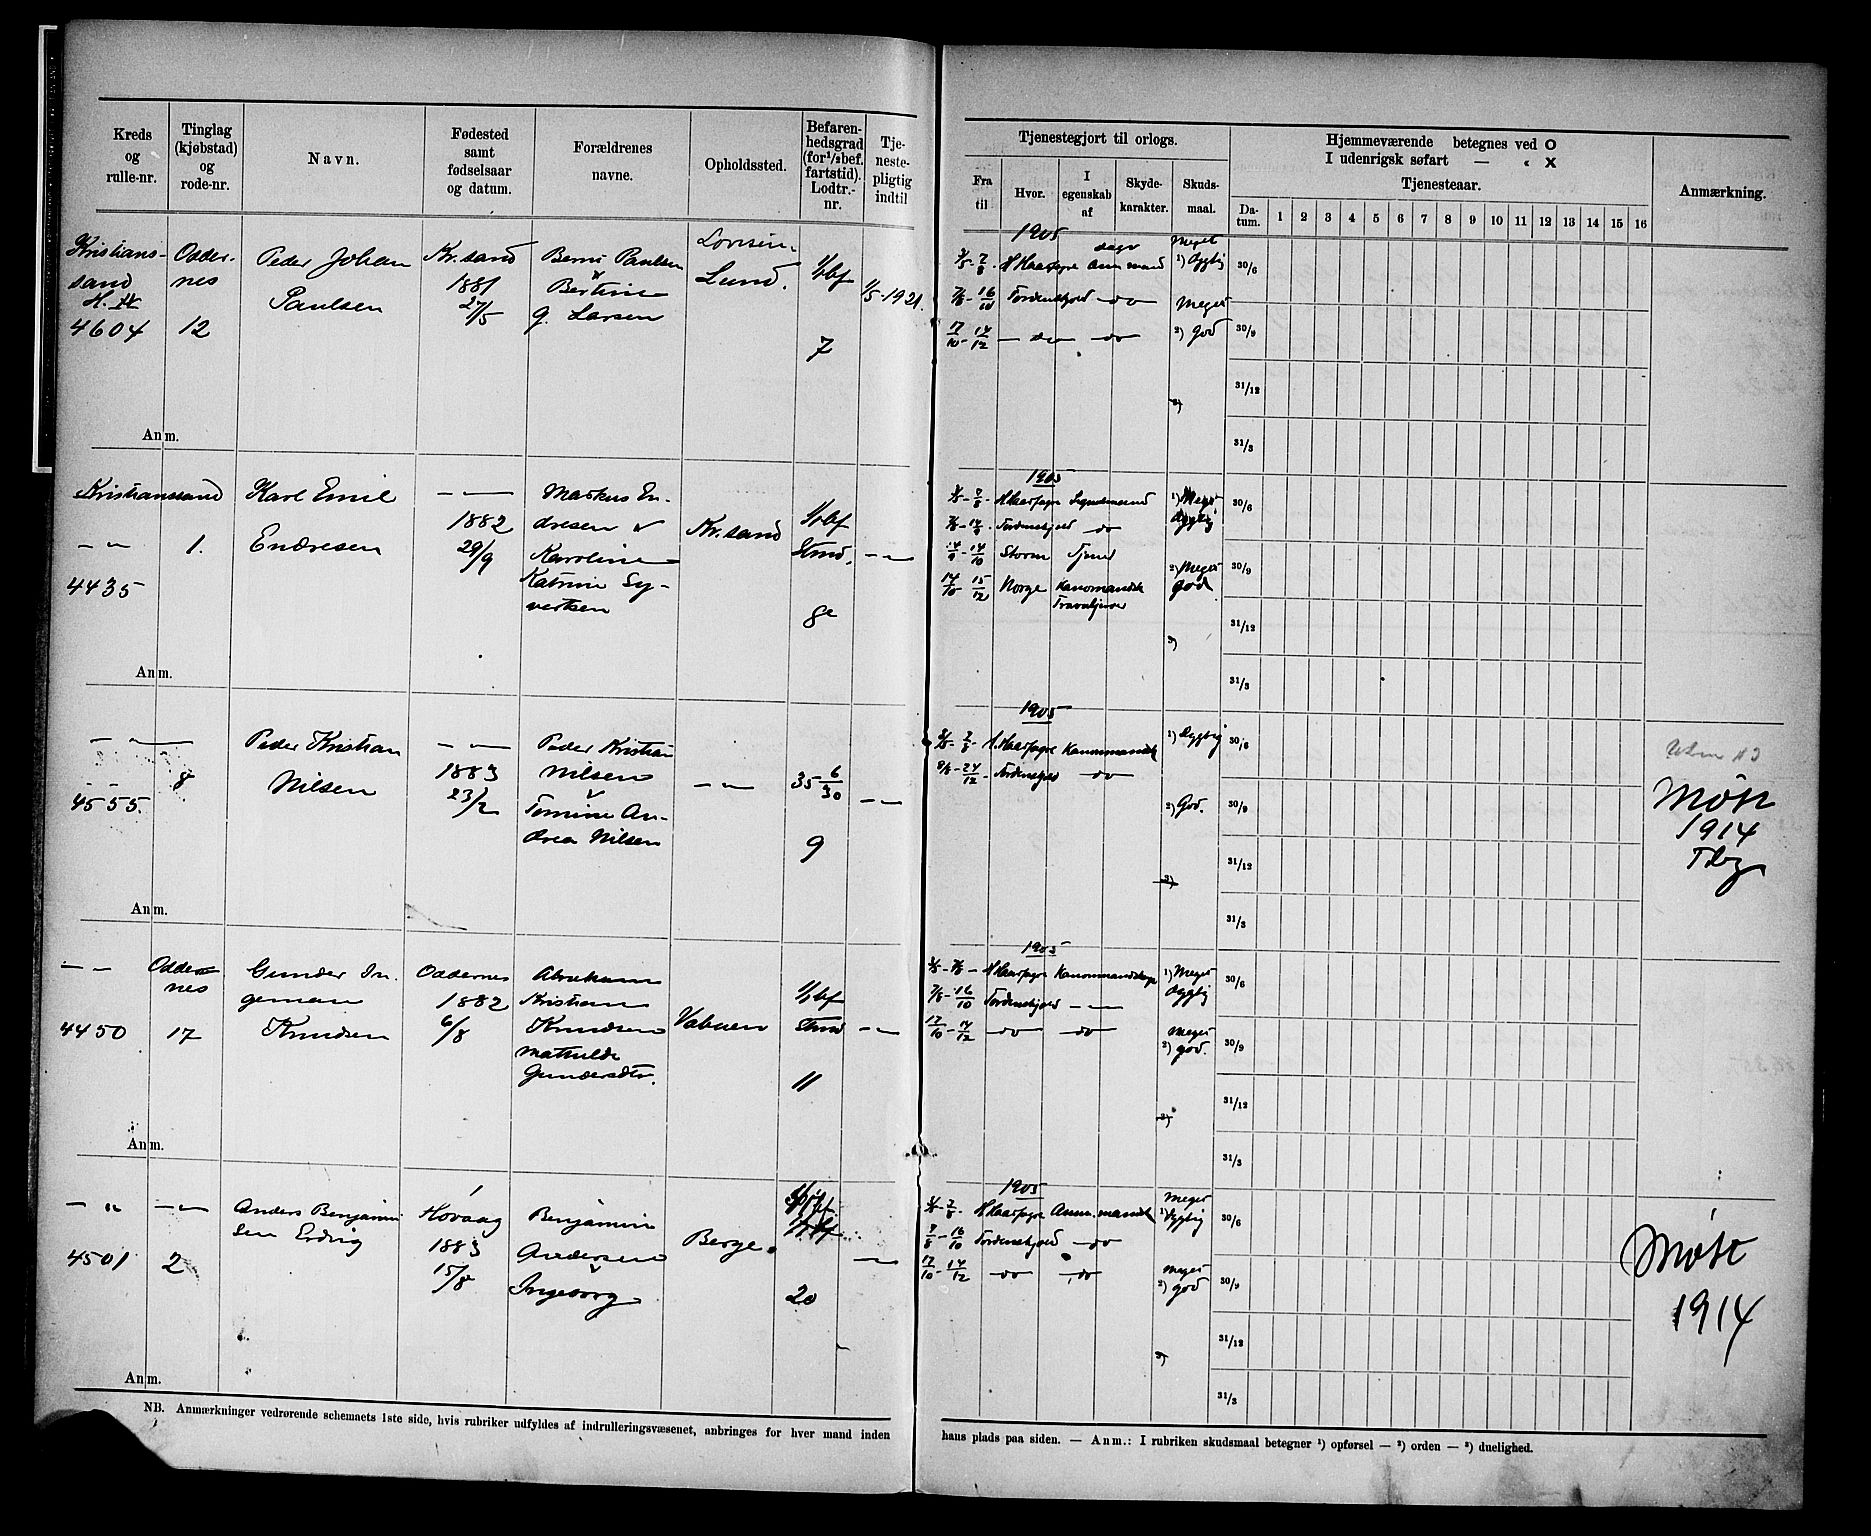 Kreds og rulle-nr.
Tinglag (kjøbstad) og rode-nr.
Navn.
Fødested samt fødselsaar og datum.
Forældrenes navne.
Opholdssted.
Befarenhedsgrad (for 1/2 bef. fartstid). Lodtr.-nr.
Tjenestepligtig indtil
Tjenestegjort til orlogs.
Fra til
Hvor.
I egenskab af
Skydekarakter.
Skudsmaal.
Hjemmeværende betegnes ved O
I udenrigsk søfart — „ X
Tjenesteaar.
Datum. 1 2 3 4 5 6 7 8 9 10 11 12 13 14 15 16
Anmærkning.
Kristians-
sand
4604
Odder-
nes
12
Peder Johan
Paulsen
Kr.sand
1881
27/5
Bernt Paulsen
Bertine
g. Larsen
Lund.
1/1 bf
7
1/5-1921.
1905
Meget
1) dygtig
7/8 - 16/10 Tordenskjold —do—
Meget
17/10 - 14/12 — do — —do—
2) God
3)
30/6
30/9
31/12
31/3
Anm.
Kristianssand
— „ —
4435
1.
Karl Emil
Endresen
— „ —
1882
29/9
Markus En-
dresen &
Karoline
Katrine Sy-
vertsen
Kr.sand
1/1 bf
— „ —
1905
7/8 - 14/9 Tordenskjold —do—
14/9 - 14/10 Storm
14/10 - 15/12 Norge
1) Meget
dygtig
2) Meget
god
3)
30/6
30/9
31/12
31/3
Anm.
— „ —
4555.
8
Peder Kristian
Nilsen
— „ —
1883
23/2
Peder Kristian
Nilsen
&
Tomine An-
drea Nilsen
— „ —
35 6/30
9
— „ —
1905
H. Haarfagre Kanonmandsk
Tordenskjold —do—
1) Dygtig
2) God.
3)
30/6
30/9
31/12
31/3
Møtt
1914
Anm.
— „ —
4450
Odder-
nes
17
Gunder In-
geman
Knudsen
Oddernes
1882
6/8
Abraham
Kristian
Knudsen
Mathilde
Gundersdtr.
1/1 bf
11
— „ —
1905
7/8 - 16/10 Tordenskjold — „ —
17/10 - 14/12 —do— —do—
1) Meget
dygtig
Meget
2) god.
3)
30/6
30/9
31/12
31/3
Anm.
— „ —
4501
— „ —
2
Anders Benjamin
sen
Høvaag
1883
15/8
Benjamin
Andersen
&
Ingeborg
Berge.
20
— „ —
1905
7/8 - 16/10 Tordenskjold —do—
17/10 - 14/12 —do— —do—
Meget
1) dygtig
Meget
2) god
3)
30/6
30/9
31/12
31/3
Møtt
1914
Anm.
NB. Anmærkninger vedrørende schemaets 1ste side, hvis rubriker udfyldes af indrulleringsvæsenet, anbringes for hver mand inden
hans plads paa siden. — Anm.: I rubriken skudsmaal betegner ¹) opførsel — ²) orden — ³) duelighed.